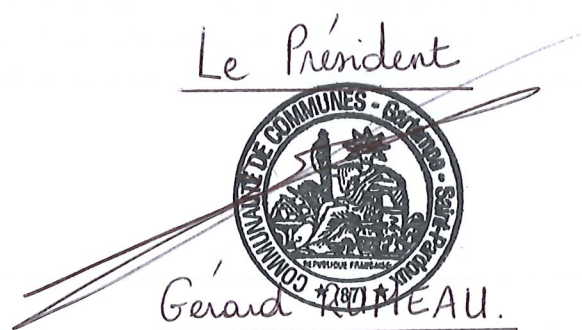 Le Président
COMMUNAUTÉ DE COMMUNES - Gartempe - Saint-Pardoux
REPUBLIQUE FRANÇAISE
★ (87) ★
Gérard RUMEAU.